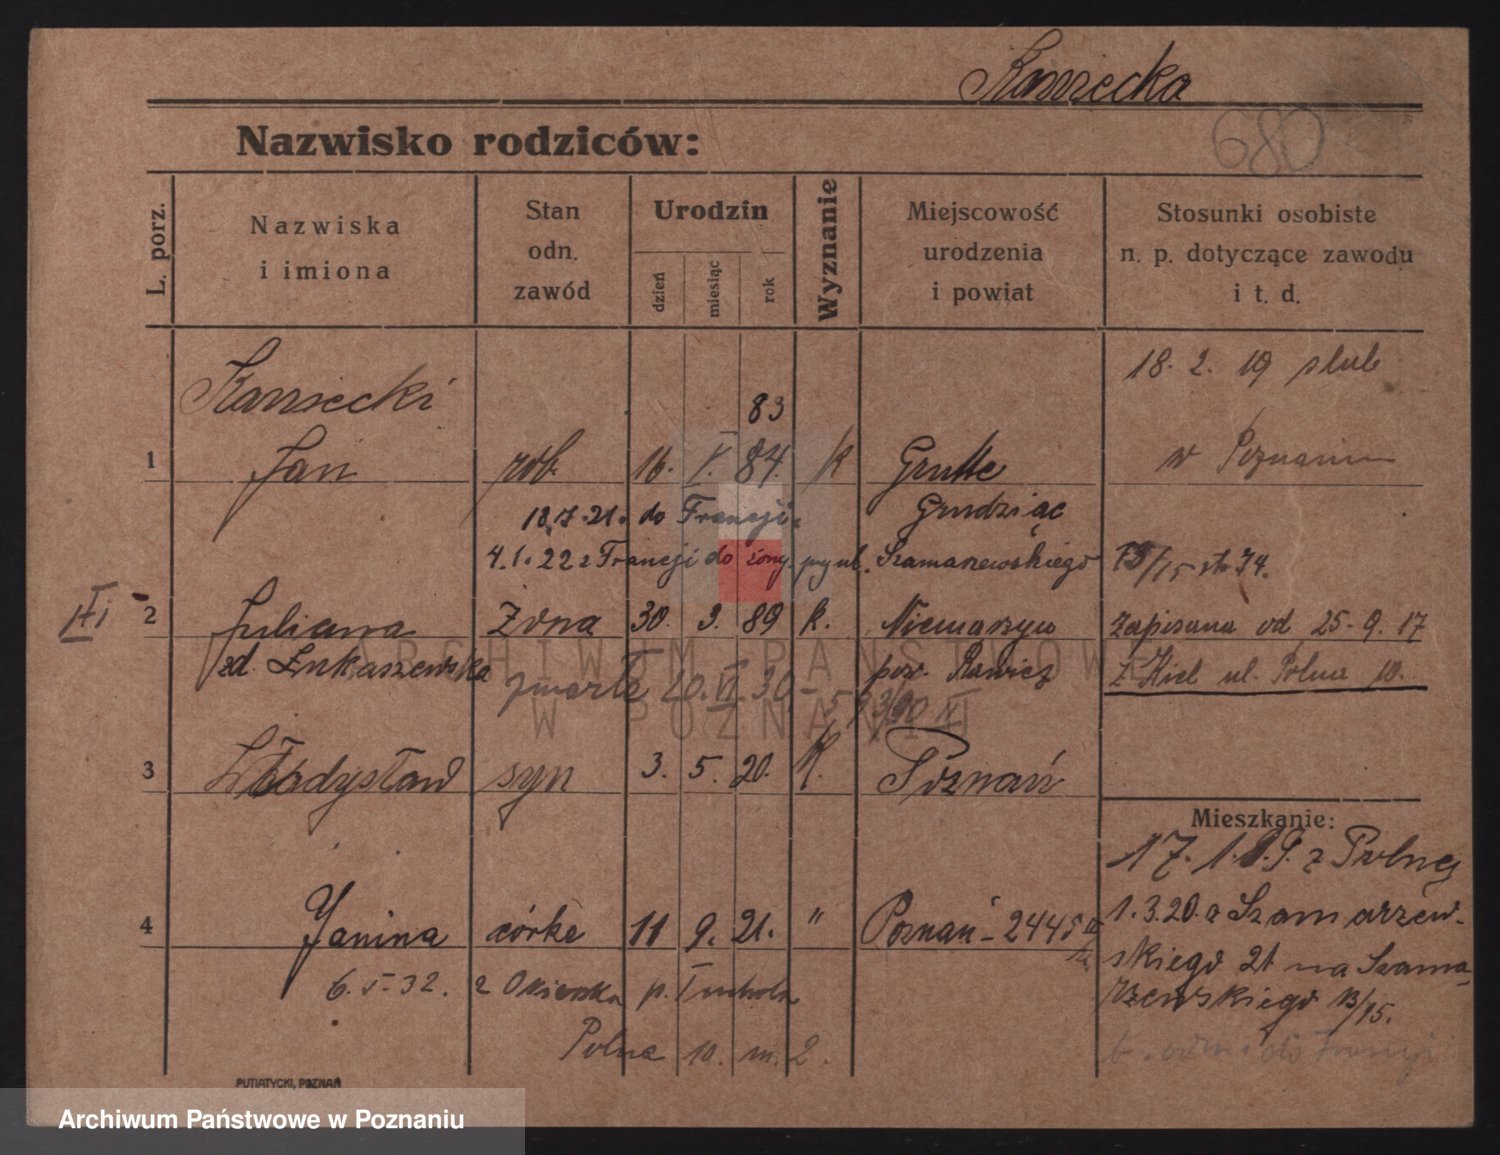 Kamiecka
680
Nazwisko rodziców:
L. porz.
Nazwiska i imiona
Stan odn. zawód
Urodzin
dzień
miesiąc
rok
Wyznanie
Miejscowość urodzenia i powiat
Stosunki osobiste n. p. dotyczące zawodu i t. d.
18. 2. 19 slub
Kamiecki
83
1 Jan rob. 16. V. 84. k Grutte w Poznaniu
Grudziąc
18.7.21. do Francji.
4.1.22 z Francji do żony, przy ul. Szamarzewskiego 13/15 st. 74.
2 Juliana żona 30. 3. 89 k. Niemarzyn zapisana od 25-9.17
zd. Łukaszewska pow. Rawicz z Kiel ul. Polna 10.
zmarła 20. VI. 30
3 Władysław syn 3. 5. 20. K. Poznań
Mieszkanie:
17. 1. z Polnej
4 Janina córka 11 9. 21. " Poznań - 2445
1.3.20. z Szamarzew-
skiego 21 na Szama-
rzewskiego 13/15.
6. V. 32. z p. Tuchola
Polna 10. m. 2.
do Francji
PUTIATYCKI, POZNAŃ
ARCHIWUM PAŃSTWOWE
W POZNANIU
Archiwum Państwowe w Poznaniu